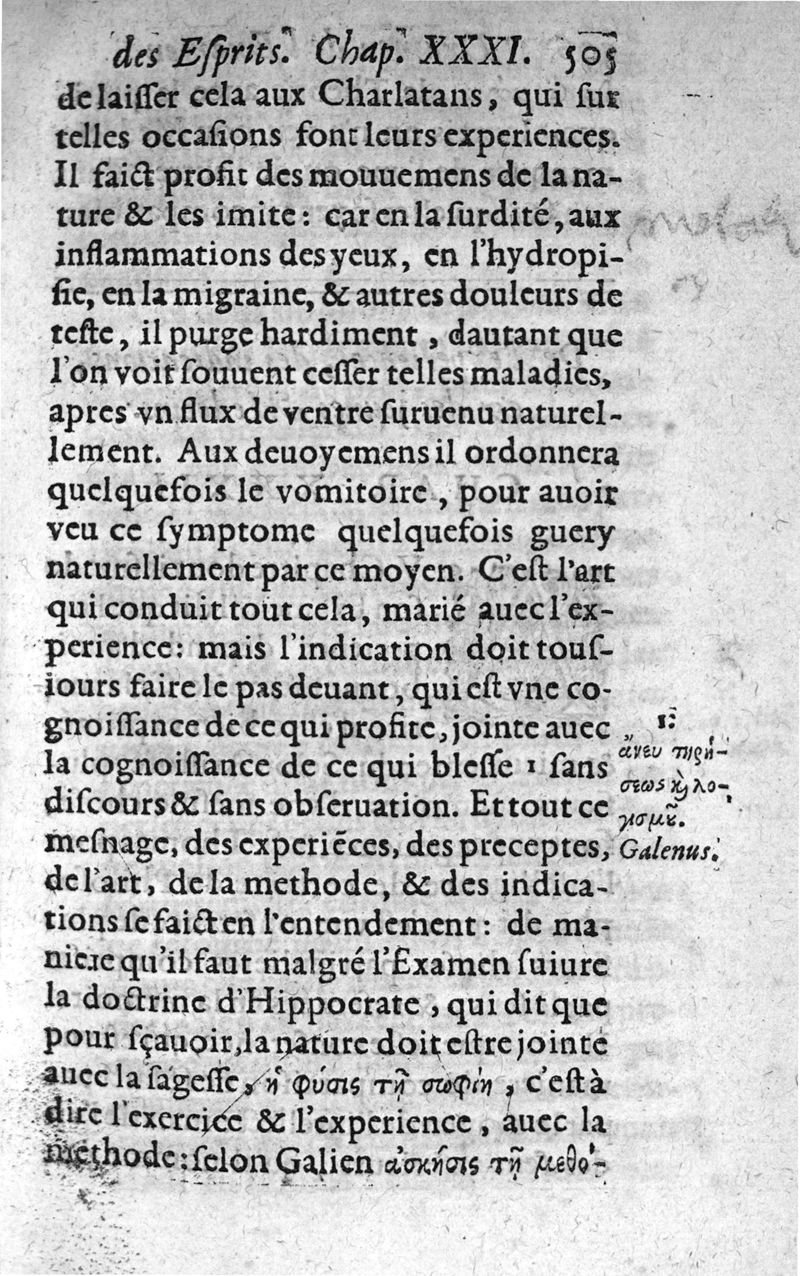 des Eſprits. Chap. XXXI. 505
de laiſſer cela aux Charlatans, qui ſur
telles occaſions font leurs experiences.
Il faict profit des mouuemens de la na-
ture & les imite: car en la ſurdité, aux
inflammations des yeux, en l'hydropi-
ſie, en la migraine, & autres douleurs de
teſte, il purge hardiment, dautant que
l'on voit ſouuent ceſſer telles maladies,
apres vn flux de ventre ſuruenu naturel-
lement. Aux deuoyemens il ordonnera
quelquefois le vomitoire, pour auoir
veu ce ſymptome quelquefois guery
naturellement par ce moyen. C'eſt l'art
qui conduit tout cela, marié auec l'ex-
perience: mais l'indication doit touſ-
iours faire le pas deuant, qui eſt vne co-
gnoiſſance de ce qui profite, jointe auec
la cognoiſſance de ce qui bleſſe 1 ſans
diſcours & ſans obſeruation. Et tout ce
meſnage, des experiēces, des preceptes,
de l'art, de la methode, & des indica-
tions ſe faict en l'entendement: de ma-
niere qu'il faut malgré l'Examen ſuiure
la doctrine d'Hippocrate, qui dit que
pour ſçauoir, la nature doit eſtre jointe
auec la ſageſſe, ἡ φύσις τῇ σωφίη, c'eſt à
dire l'exercice & l'experience, auec la
methode: ſelon Galien ἀσκήσις τῇ μεθο-
„ 1:
ανευ τηρή-
σεως κὶ λο-
γισμȣ͂.
Galenus.